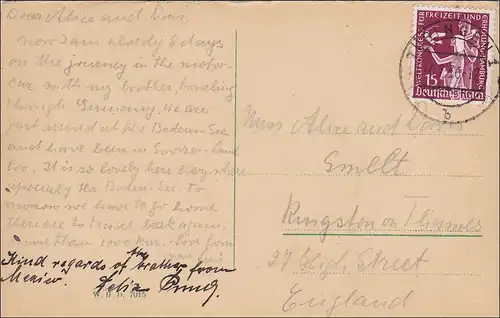 Dear Alice and Doris,
now I am already 8 days
on the journey in the motor-
car with my brother, traveling
through Germany. We are
just arrived at the Bodensee
and have been in
too. It is so lovely here everywhere
specialy the Boden-See. To
morrow we have to go home
There are to travel back again,
more than 1000 km. Love from
Kind regards of the brother from
Mexico. Felix
W. O. D. 2015
WELTKONGRESS FÜR FREIZEIT UND ERHOLUNG HAMBURG
15
Deutsches Reich
b
Miss Alice and Doris
Smelt
Kingston on Thames
27 High Street
England